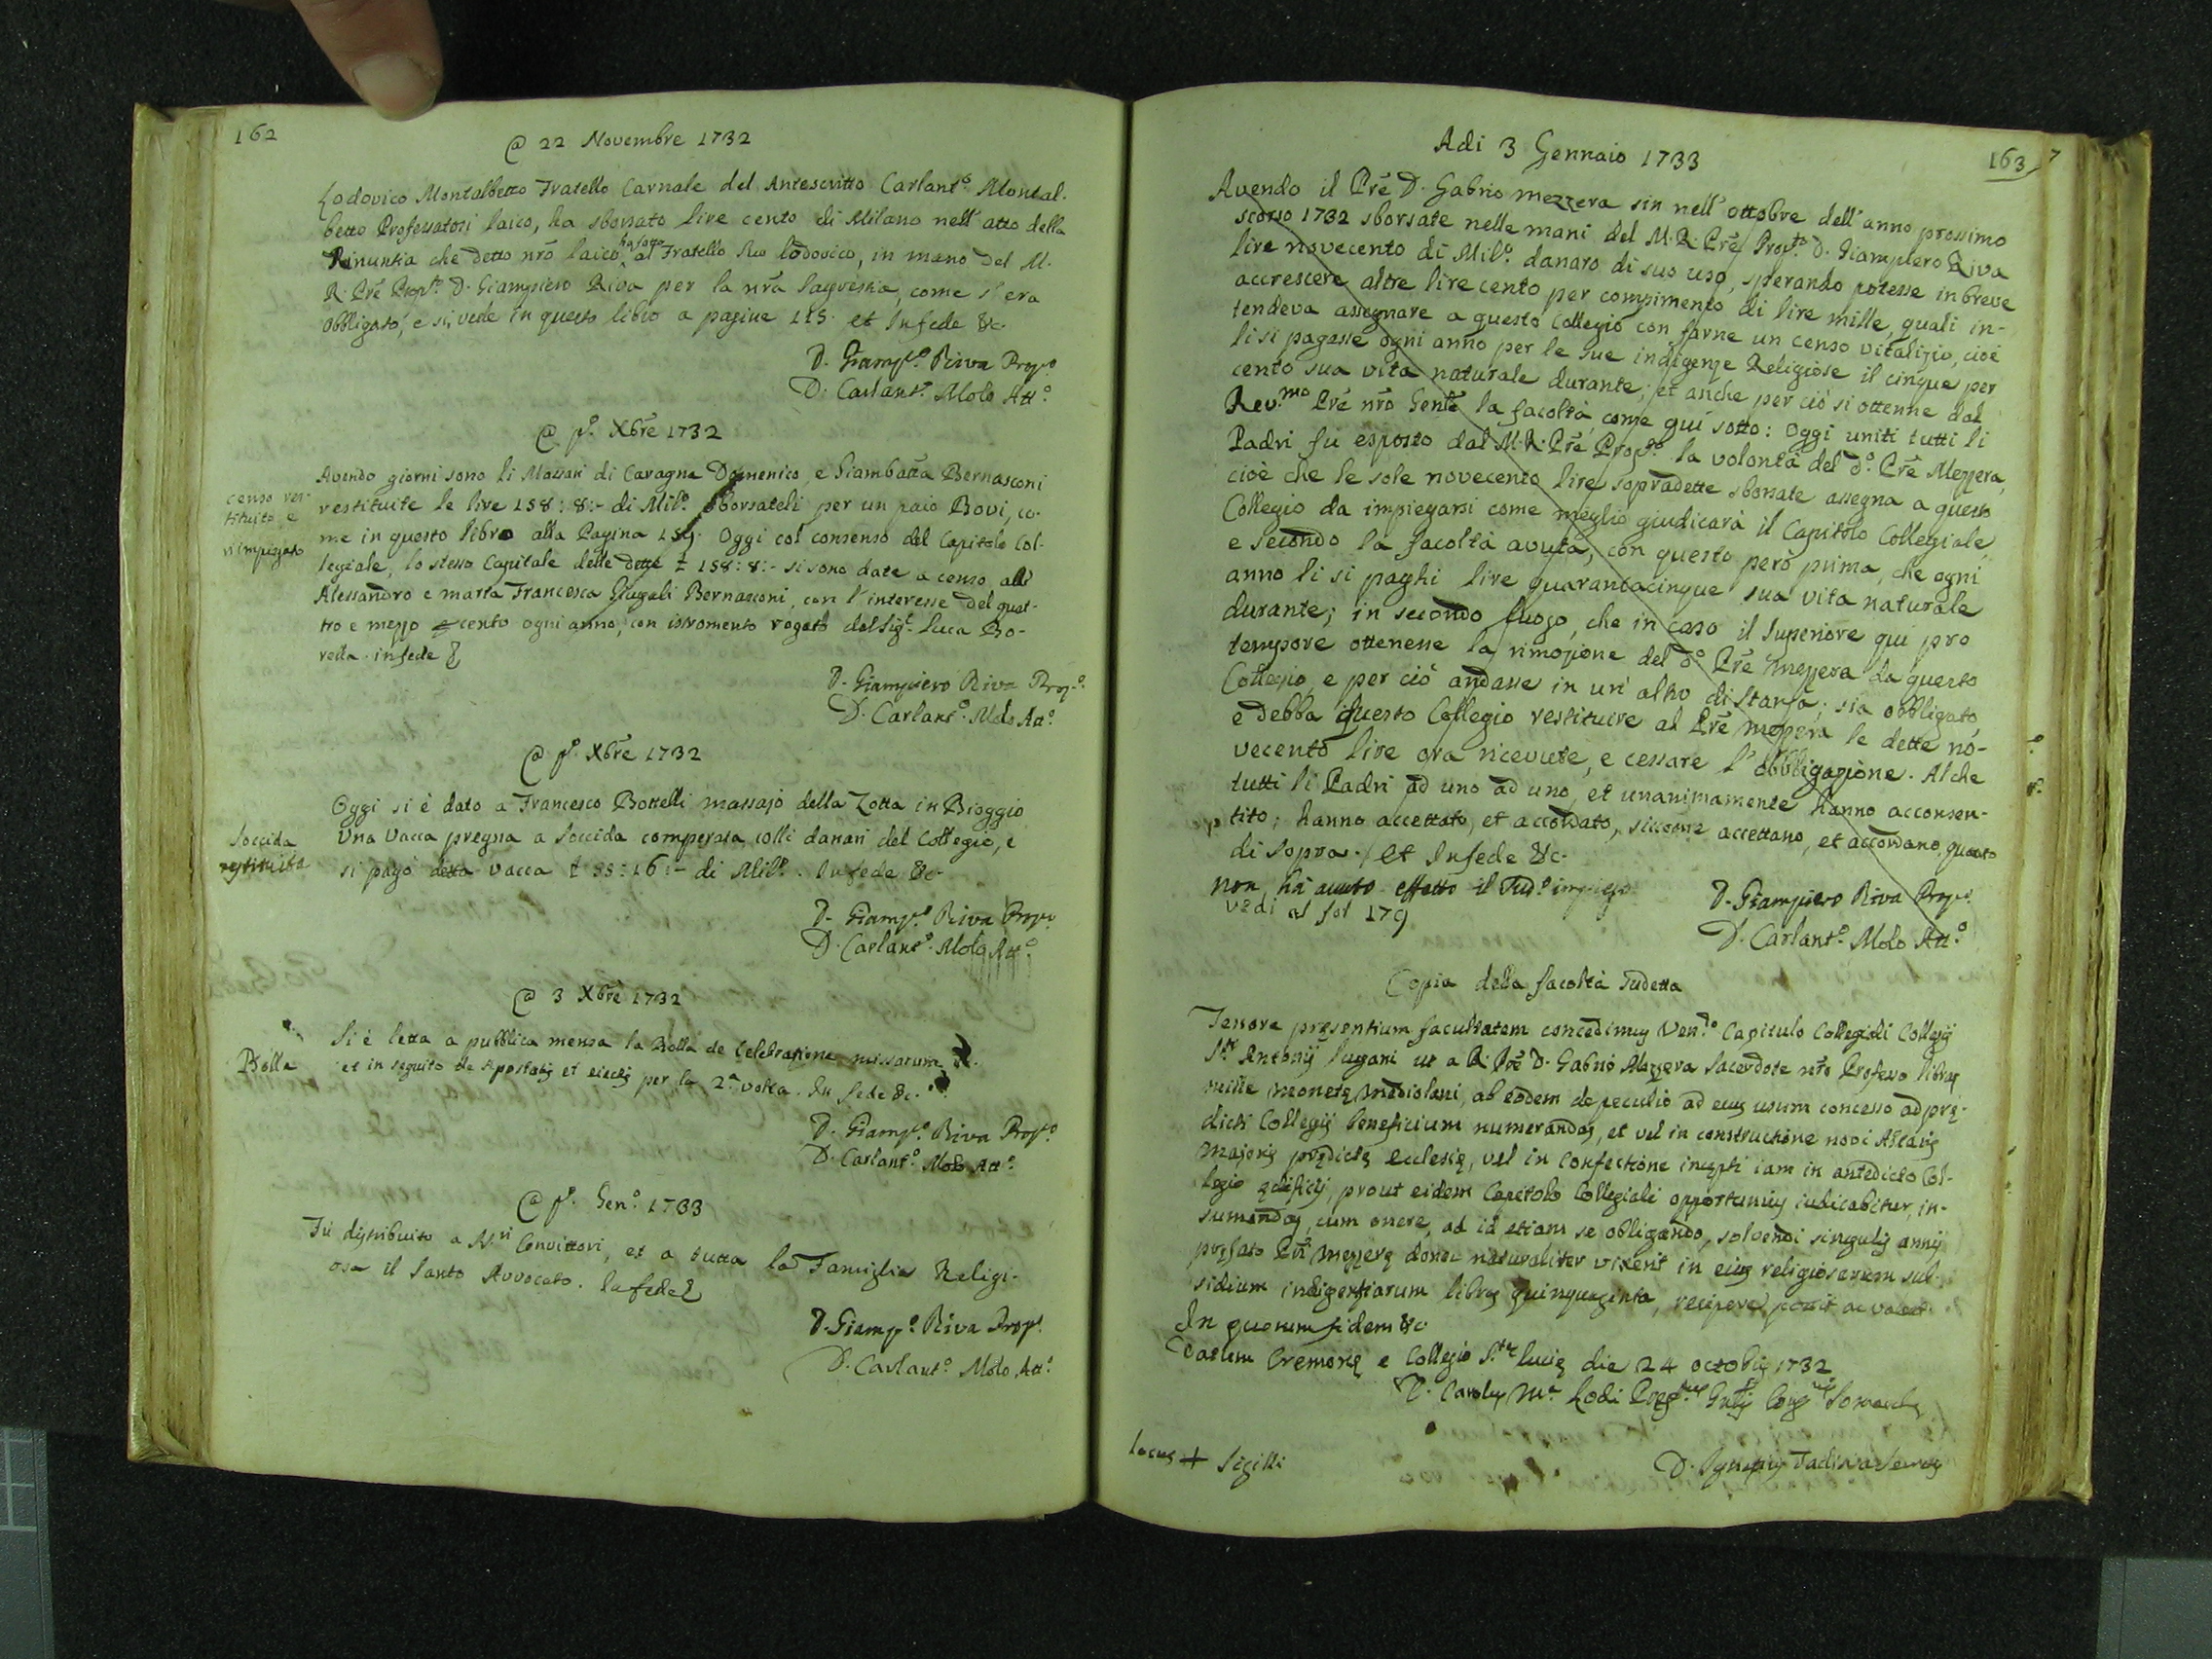 162
@ 22 Novembre 1732
Lodovico Montalbetto Fratello Carnale del Antescritto Carlantº. Montal-
betto Professatosi laico, ha sborsato lire cento di Milano nell' atto della
Rinuntia che detto nrõ laico ha fatto al Fratello suo lodovico, in mano del M.
R. Prẽ Propº. D. Giampiero Riva per la nrã Sagrestia, come s'era
obbligato, e si vede in questo libro a pagine 115. et Infede &c.
D. Giampº. Riva Propº.
D. Carlantº. Molo Attº.
@ pº. Xbrẽ 1732
Avendo giorni sono li Massari di Caragna Domenico, e Giambatta Bernasconi
censo res-
tituito, e
rimpiegato
restituite le lire 158:8:- di Milº. sborsateli per un paio Bovi, co-
me in questo libro alla Pagina 159. Oggi col consenso del Capitolo Col-
legiale, lo stesso Capitale delle dette £ 158:8:- si sono date a censo alli
Alessandro e marta Francesca Giugali Bernasconi, con l'interesse del quat-
tro e mezzo cento ogni anno, con istromento rogato dal Sigr. Luca Bo-
rella. infede &
D. Giampiero Riva Propº.
D. Carlantº. Molo Attº.
@ pº. Xbrẽ 1732
Oggi si è dato a Francesco Bottelli massajo della Zotta in Bioggio
Soccida
restituita
Una Vacca pregna a Soccida comperata colli danari del Collegio, e
si pagò detta vacca £ 55:16:- di Milº. Infede &c.
D. Giampº. Riva Propº.
D. Carlantº. Molo Attº.
@ 3 Xbrẽ 1732
Si è letta a pubblica mensa la Bolla de Celebratione missarum &.
Bolla
et in seguito de Apostatis et eiectis per la 2ª. volta. In fede &c.
D. Giampº. Riva Propº.
D. Carlantº. Molo Attº.
@ pº. Genº. 1733
Fù distribuito a N.ri Convittori, et a tutta la Famiglia Religi-
osa il Santo Avvocato. Infede &
D. Giampº. Riva Propº.
D. Carlantº. Molo Attº.
Adi 3 Gennaio 1733
163
7
Avendo il Prẽ D. Gabrio mezzera sin nell' ottobre dell' anno prossimo
scorso 1732 sborsate nelle mani del M. R. Prẽ Propº. D. Giampiero Riva
lire novecento di Milº. danaro di suo uso, sperando potesse in breve
accrescere altre lire cento per compimento di lire mille, quali in-
tendeva assegnare a questo Collegio con farne un censo vitalizio, cioè
li si pagasse ogni anno per le sue indigenze Religiose il cinque per
cento sua vita naturale durante; et anche per ciò si ottenne dal
Rev.mo Prẽ nrõ Genle la facoltà come qui sotto: Oggi uniti tutti li
Padri fù esposto dal M. R. Prẽ Propº. la volontà del dº. Prẽ Mezzera,
cioè che le sole novecento lire sopradette sborsate assegna a questo
Collegio da impiegarsi come meglio giudicarà il Capitolo Collegiale
e secondo la facoltà avuta, con questo però prima, che ogni
anno li si paghi lire quarantacinque sua vita naturale
durante; in secondo luogo, che in caso il Superiore qui pro
tempore ottenesse la rimozione del dº. Prẽ Mezzera da questo
Collegio, e per ciò andasse in un' altro di Stanza; sia obbligato,
e debba questo Collegio restituire al Prẽ mezzera le dette no-
vecento lire ora ricevute, e cessare l'obbligazione. Al che
tutti li Padri ad uno ad uno, et unanimamente hanno acconsen-
tito; hanno accettato, et accordato, siccome accettano, et accordano quanto
di sopra. et Infede &c.
D. Giampiero Riva Propº.
non hà avuto effetto il sudº. impiego
vedi al fol 179
D. Carlantº. Molo Attº.
Copia della facoltà sudetta
Tenore presentium facultatem concedimus Ven.do Capitulo Collegiali Collegij
S.ti Antonij Lugani ut a R. Prẽ D. Gabrio Mezzera Sacerdote nrõ Professo libras
mille monetę Mediolani, ab eodem de peculio ad eius usum concesso ad prę-
dicti Collegij beneficium numerandas, et vel in constructione novi Altaris
Majoris prędictę ecclesię, vel in confectione incępti iam in antedicto Col-
legio ędificij, prout eidem Capitolo Collegiali opportunius iudicabitur, in-
sumendas, cum onere, ad id etiam se obligando, solvendi singulis annis
pręfato Pri Mezzerę donec naturaliter vixerit in eius religiosarum sub-
sidium indigentiarum libras quinquaginta, recipere possit ac valeat.
In quorum fidem &c
Datum Cremonę e Collegio S.tę Lucię die 24 octobris 1732
D. Carolus Mª. Lodi Pręp.tus Gnlis Cong.nis Somaschę
locus + Sigilli
D. Ignatius